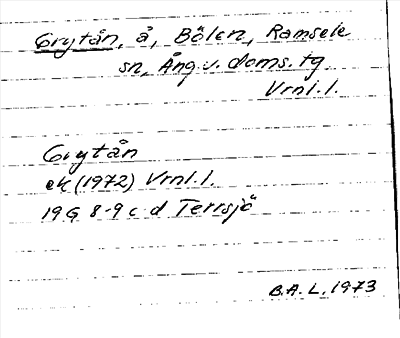 Grytån, å, Bölen, Ramsele
sn, Ång. v. doms. tg
Vrnl.l.
Grytån
ek (1972) Vrnl.l.
19G 8-9 c d Terrsjö
B.A.L. 1973